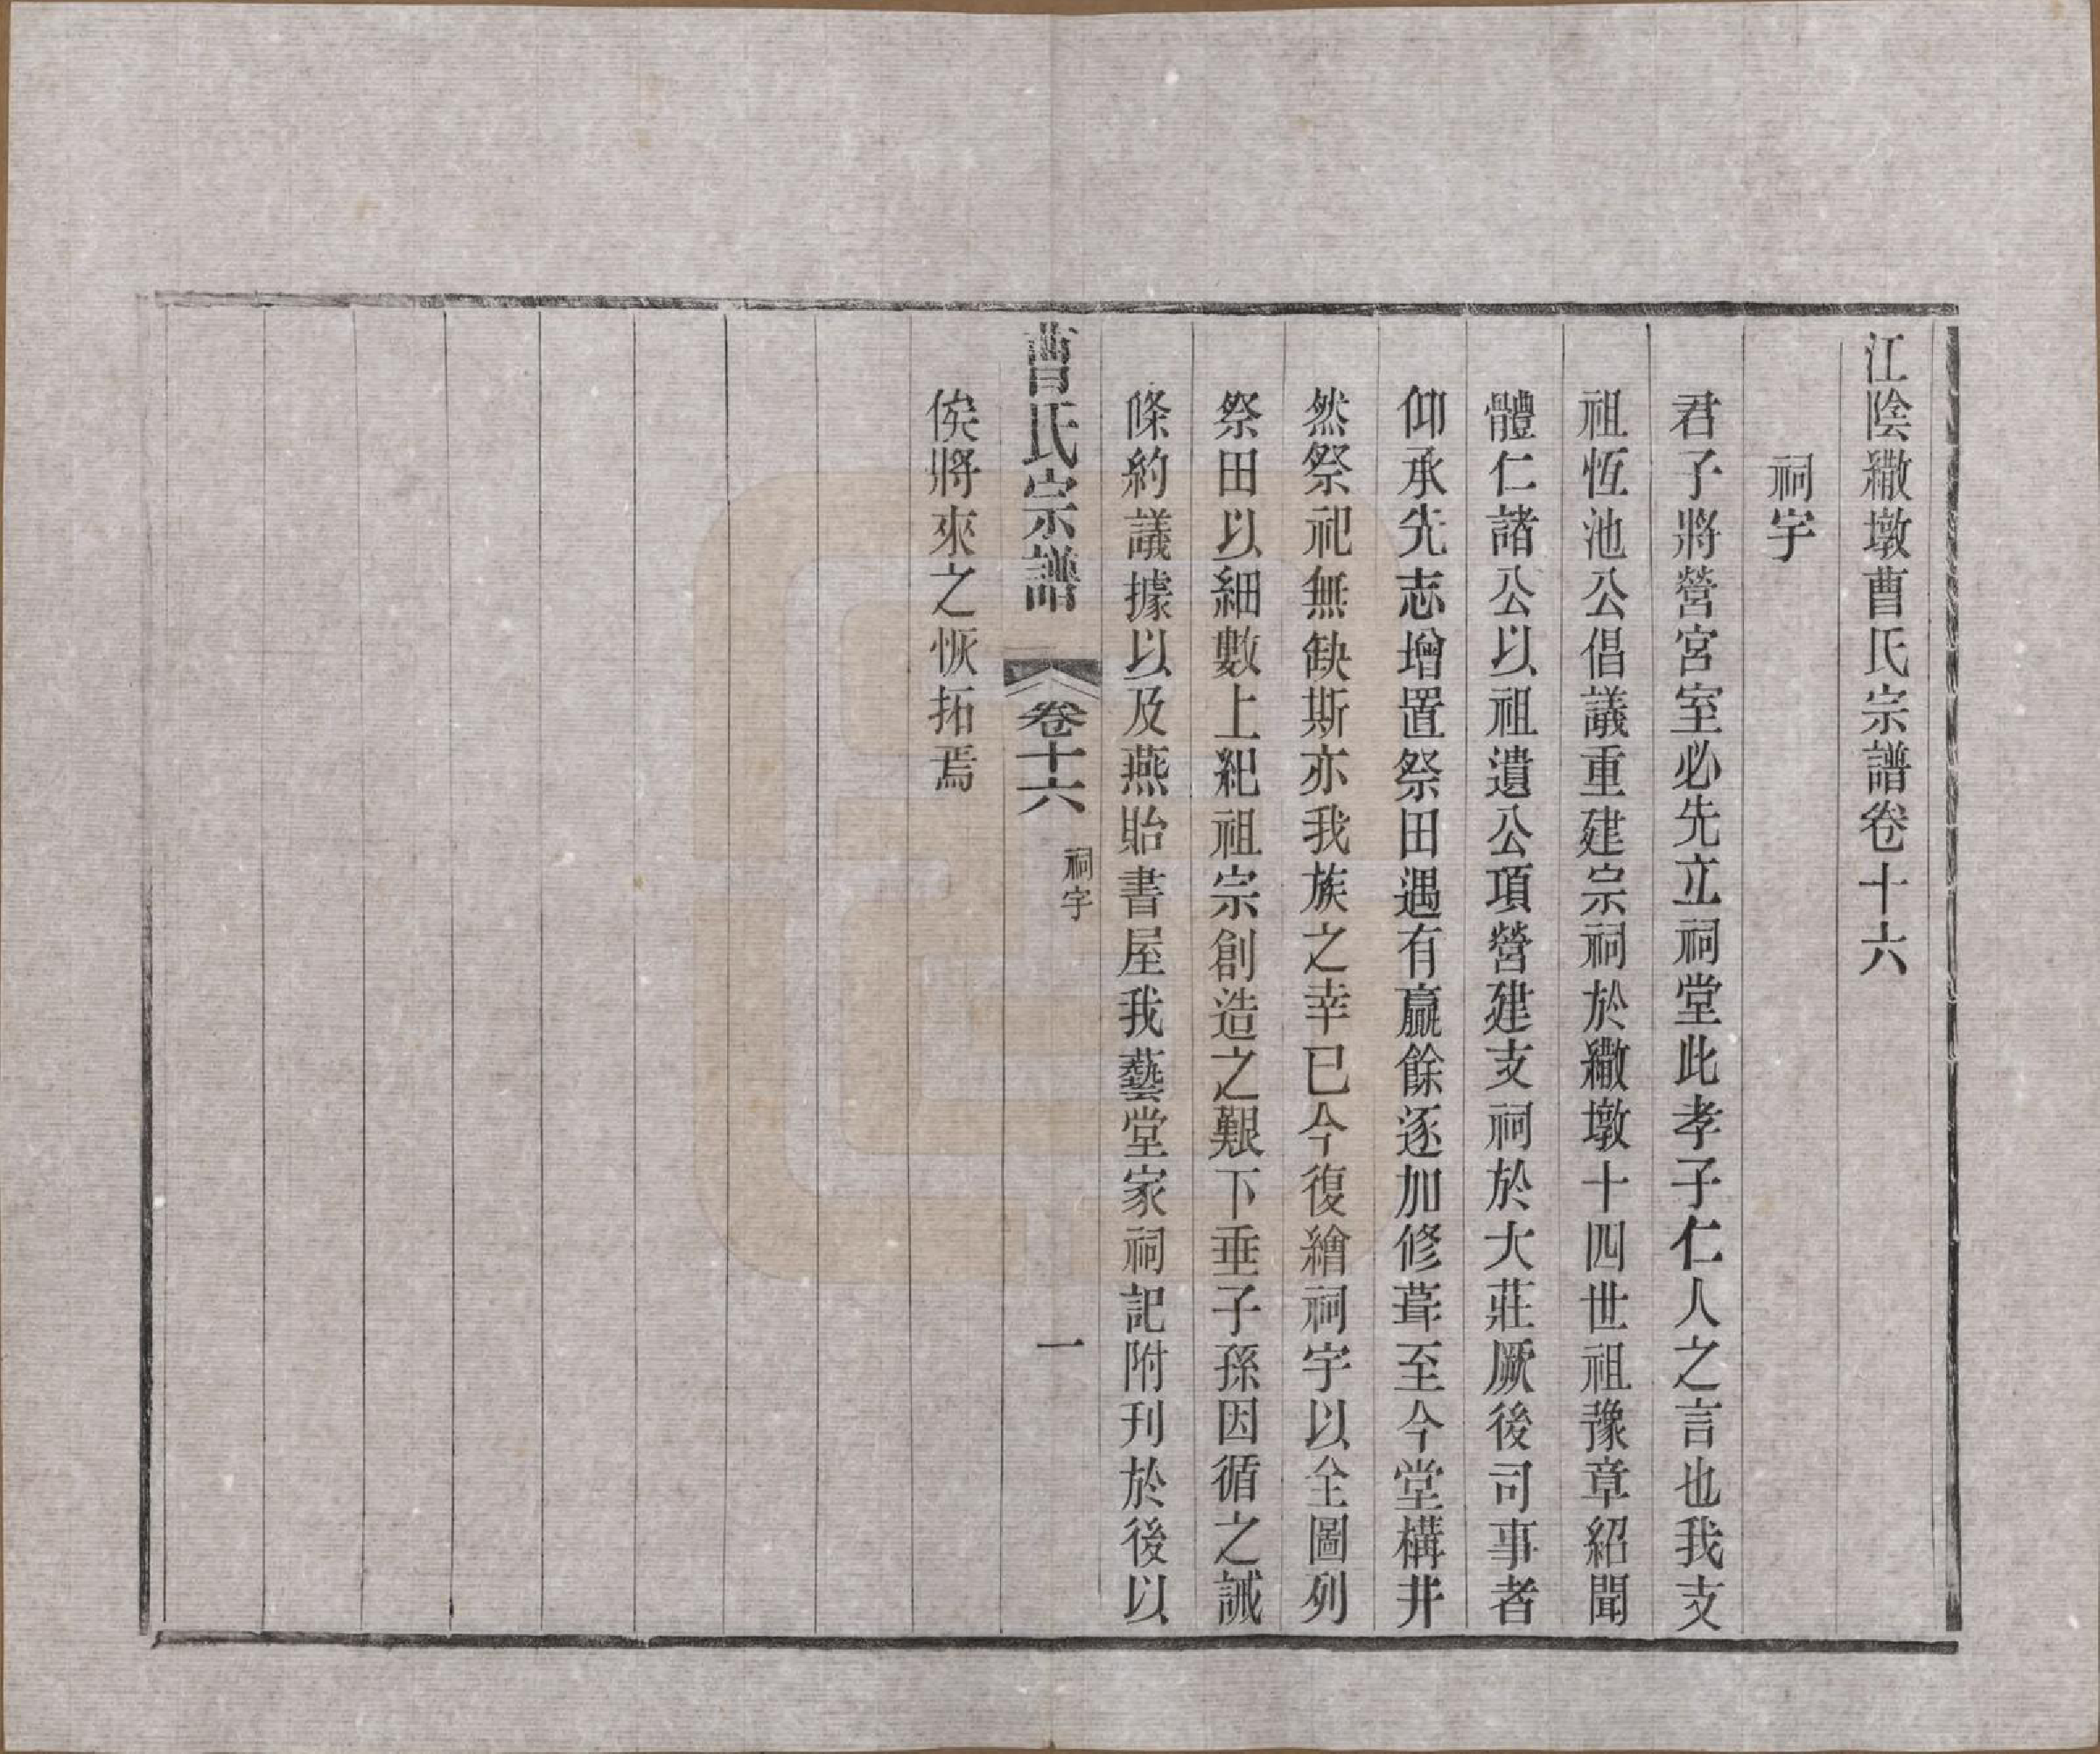 江陰繖墩曹氏宗譜卷十六
祠宇
君子將營宮室必先立祠堂此孝子仁人之言也我支
祖恆池公倡議重建宗祠於繖墩十四世祖豫章紹聞
體仁諸公以祖遺公項營建支祠於大莊厥後司事者
仰承先志增置祭田遇有贏餘逐加修葺至今堂構井
然祭祀無缺斯亦我族之幸已今復繪祠宇以全圖列
祭田以細數上紀祖宗創造之艱下垂子孫因循之誡
條約議據以及燕貽書屋我藝堂家祠記附刊於後以
曹氏宗譜 卷十六 祠宇 一
俟將來之恢拓焉